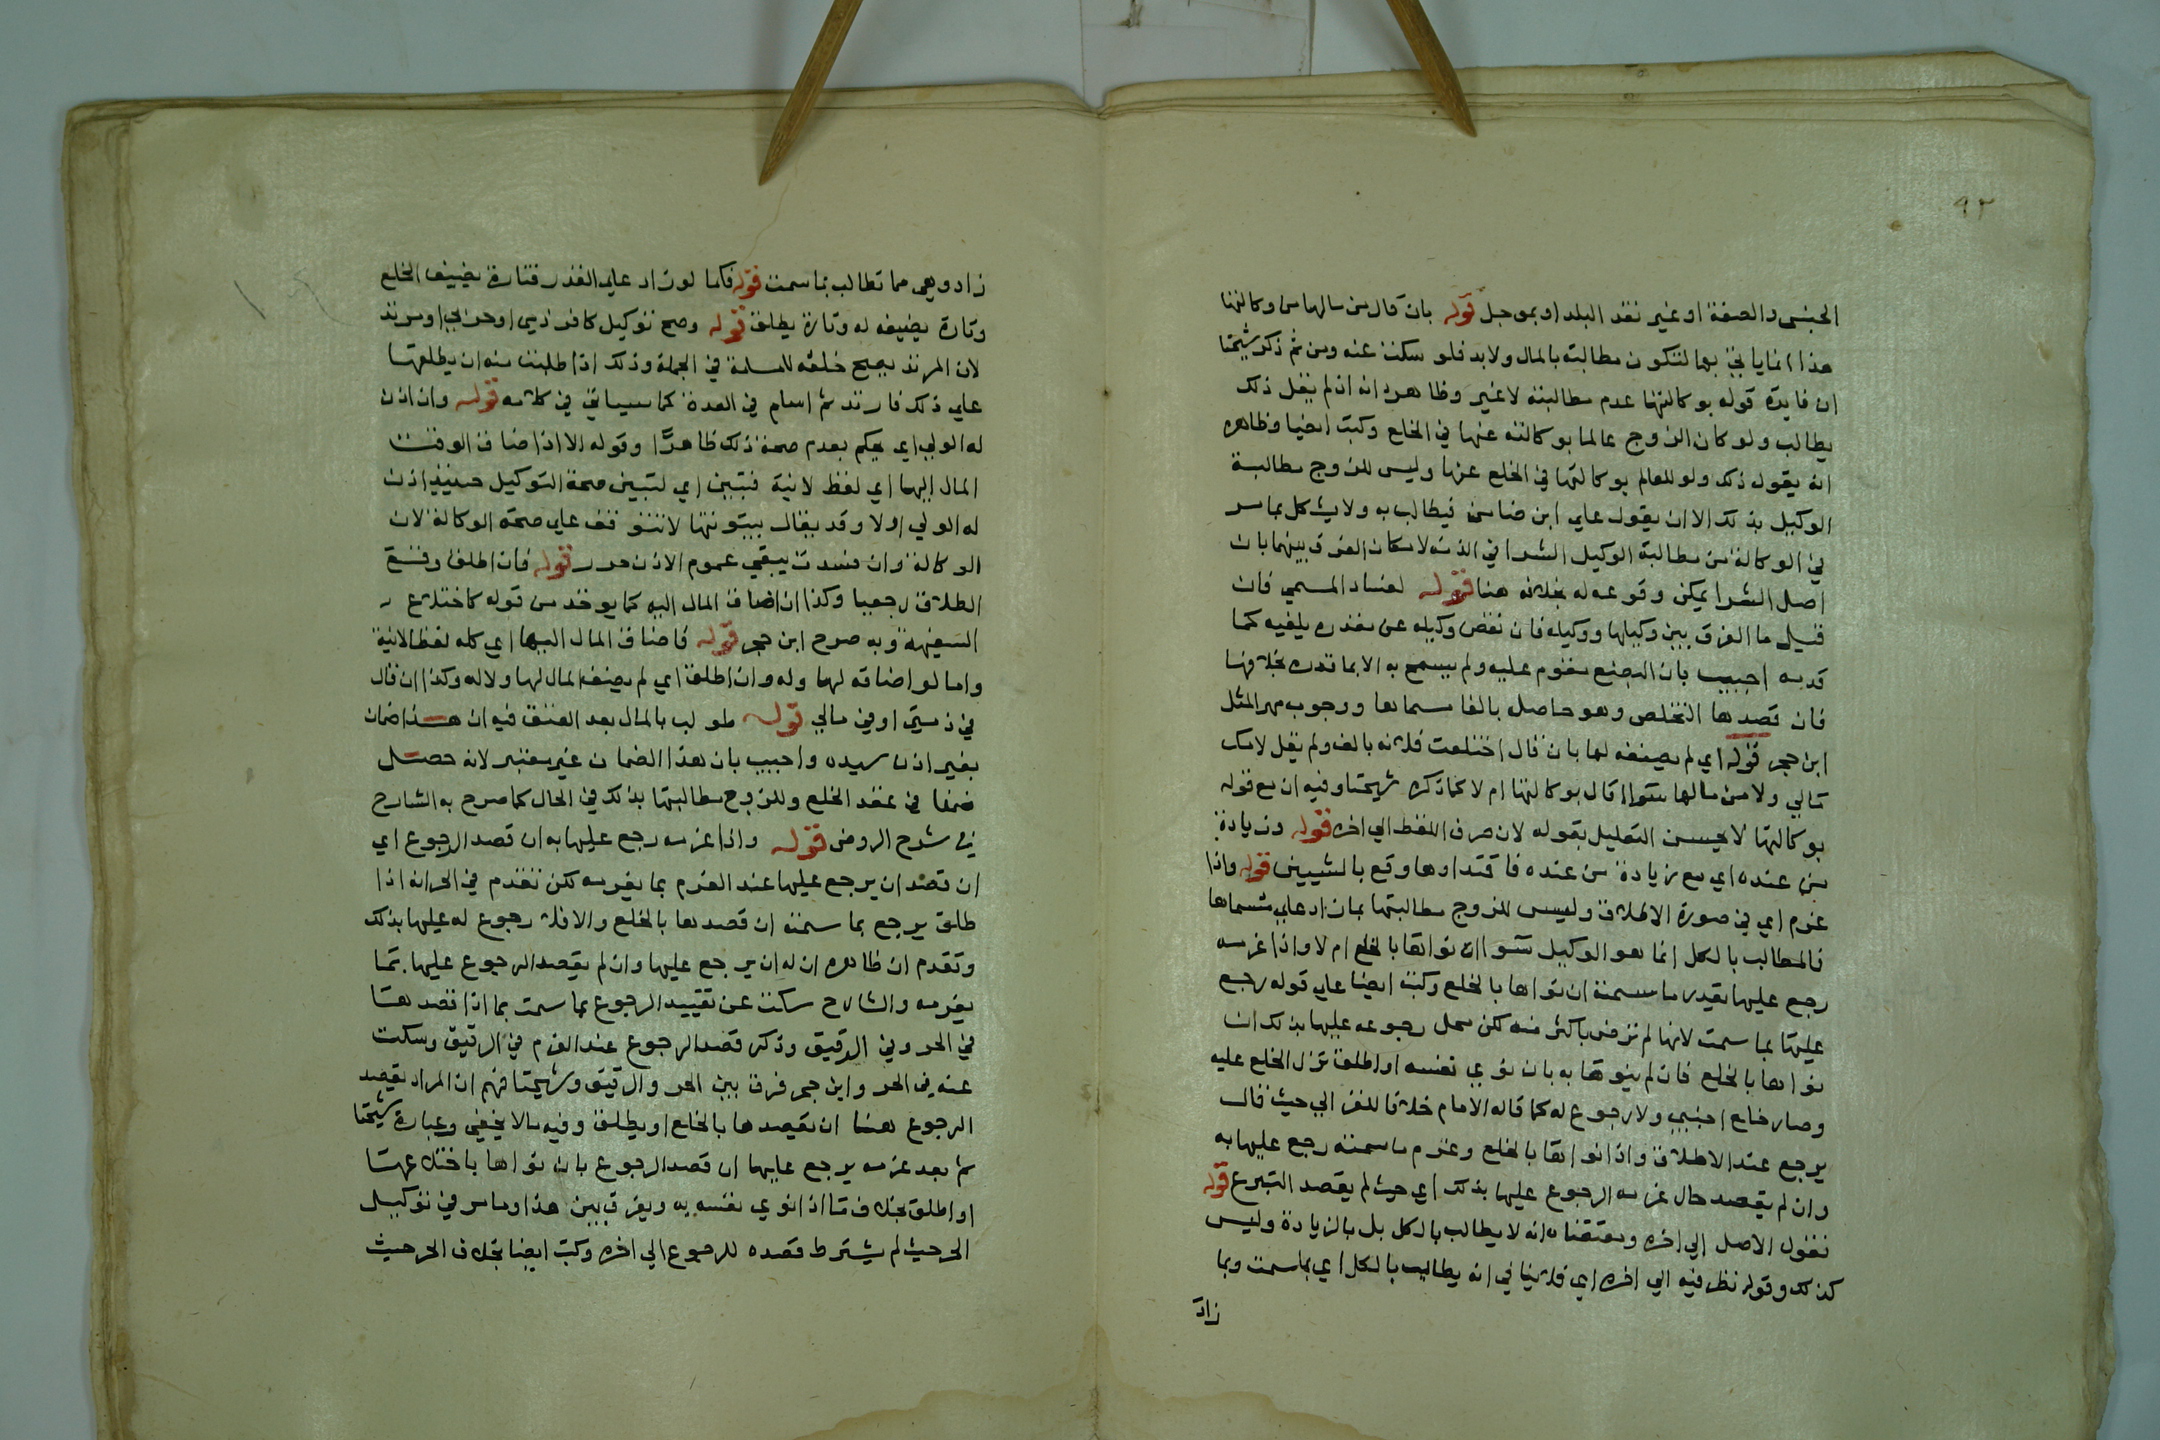 ٩٢
الجنس والصفة او غير نقد البلد او بموجل قوله بان قال من مالها من وكالتها
هذا انما يا بها لتكون مطالبته بالمال ولابد فلو سكت عنه ومن ثم ذكر شيخنا
ان فايدة قوله بوكالتها عدم مطالبته لا غير وظاهره انه اذ لم يقل ذلك
يطالب ولو كان الزوج عالما بوكالته عنها في الخلع وكتب ايضا وظاهره
انه يقول ذلك ولو للعالم بوكالتها في الخلع عنها وليس للزوج مطالبة
الوكيل بذلك الا ان يقول علي اني ضامن فيطالب به ولا يشكل بما مر
في الوكالة من مطالبة الوكيل الشرا في الذمه لامكان الفرق بينهما بان
اصل الشرا يمكن وقوعه له بخلافه هنا قوله لفساد المسمي فان
قيل ما الفرق بين وكيلها ووكيله فان نقص وكيله عن مقدره يلغيه كما
قدمه اجيب بان البضع مقوم عليه ولم يسمح به الا بما قدره بخلافها
فان قصدها التخلص وهو حاصل بالغا مسماها ووجوب مهر المثل
ابن حجر قوله اي لم يضفه لها بان قال اختلعت فلانه بالف ولم يقل لا من
مالي ولا من مالها سواا قال بوكالتها ام لا كما ذكره شيخنا وفيه ان مع قوله
بوكالتها لا يحسن التعليل بقوله لان صرف اللفظ الي اخره قوله وزيادة
من عنده اي مع زيادة من عنده فاقتداوها وقع بالشيين قوله واذا
غرم اي في صورة الاطلاق وليس للزوج مطالبتها بما زاد علي مسماها
فالمطالب بالكل انما هو الوكيل سواا نواها بالخلع ام لا واذا غرمه
رجع عليها بقدر ما سمته ان نواها بالخلع وكتب ايضا علي قوله رجع
عليها بما سمت لانها لم ترض باكثر منه لكن محل رجوعه عليها بذلك ان
نواها بالخلع فان لم ينوها به بان نوي نفسه او اطلق نزل الخلع عليه
وصار خلع اجنبي ولا رجوع له كما قاله الامام خلافا للغزالي حيث قال
يرجع عند الاطلاق واذا نواها بالخلع وغرم ما سمته رجع عليها به
وان لم يقصد حال غرمه الرجوع عليها بذلك اي حيث لم يقصد التبرع قوله
نقول الاصل الي اخره ومقتضاه انه لا يطالب بالكل بل بالزيادة وليس
كذلك وقوله نظر فيه الي اخره اي فلا ينافي انه يطالب بالكل اي بما سمت وبما
زاد
زاد وهي مما تطالب بما سمت قوله فكما لو زاد علي القدر فتارة يضيف الخلع
وتارة يضيفه له وتارة يطلق قوله وصح توكيل كافر ذمي او حربي او مرتد
لان المرتد يصح خلعه للمسلمة في الجملة وذلك اذا طلبت منه ان يطلقها
علي ذلك فارتد ثم اسلم في العدة كما سياتي في كلامه قوله وان اذن
له الولي اي يحكم بعدم صحة ذلك ظاهرا وقوله الا اذا اضاف
المال اليها اي لفظ لا نية فتبين اي لتبين صحة التوكيل حينيذ اذن
له الولي اولا وقد يقال ببينونتها لا تتوقف علي صحة الوكالة لان
الوكالة وان فسدت يبقي عموم الاذن قوله فان اطلق وقع
الطلاق رجعيا وكذا ان اضاف المال اليه كما يوخذ من قوله كاختلاع
السفيهة وبه صرح ابن حجر قوله فاضاف المال اليها اي كله لفظا لا نية
واما لو اضافه لها وله وان اطلق اي لم يضف المال لها ولا له وكذا ان قال
في ذمتي او في مالي قوله طولب بالمال بعد العتق فيه ان هذا ضمان
بغير اذن سيده واجيب بان هذا الضمان غير معتبر لانه حصل
ضمنا في عقد الخلع وللزوج مطالبتها بذلك في الحال كما صرح به الشارح
في شرح الروض قوله واذا غرمه رجع عليها به ان قصد الرجوع اي
ان قصد ان يرجع عليها عند الغرم بما يغرمه لكن تقدم في الحر انه اذا
طلق يرجع بما سمته ان قصدها بالخلع والا فلا رجوع له عليها بذلك
وتقدم ان ظاهره ان له ان يرجع عليها وان لم يقصد الرجوع عليها بما
يغرمه والشارح سكت عن تقييد الرجوع بما سمت بما اذا قصدها
في الحر وفي الرقيق وذكر قصد الرجوع عند الغرم في الرقيق وسكت
عنه في الحر وابن حجر فرق بين الحر والرقيق وشيخنا فهم ان المراد بقصد
الرجوع هنا ان يقصدها بالخلع او يطلق وفيه ما لا يخفي وعبارة شيخنا
ثم بعد غرمه يرجع عليها ان قصد الرجوع بان نواها باختلاعها
او اطلق بخلاف ما اذا نوي نفسه به ويفرق بين هذا وما مر في توكيل
الحر حيث لم يشترط قصده للرجوع الي اخره وكتب ايضا بخلاف الحر حيث